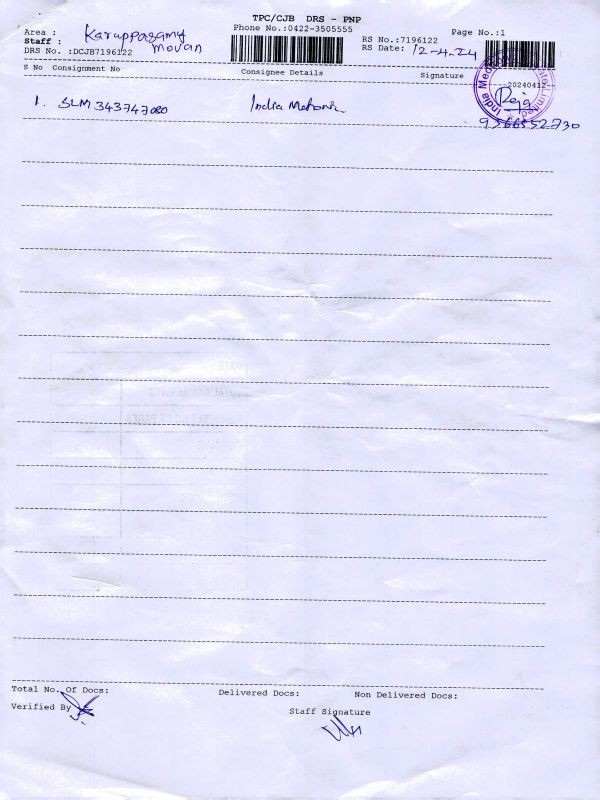 TPC/CJB DRS - PNP
Area : Karuppasamy Phone No.:0422-3505555 RS No.:7196122 Page No.:1
Staff : movan RS Date: 12-4-24
DRS No. :DCJB7196122
S No Consignment No Consignee Details Signature 20240412
1. SLM 343747080 India
9566552730
Total No. Of Docs: Delivered Docs: Non Delivered Docs:
Verified By
Staff Signature